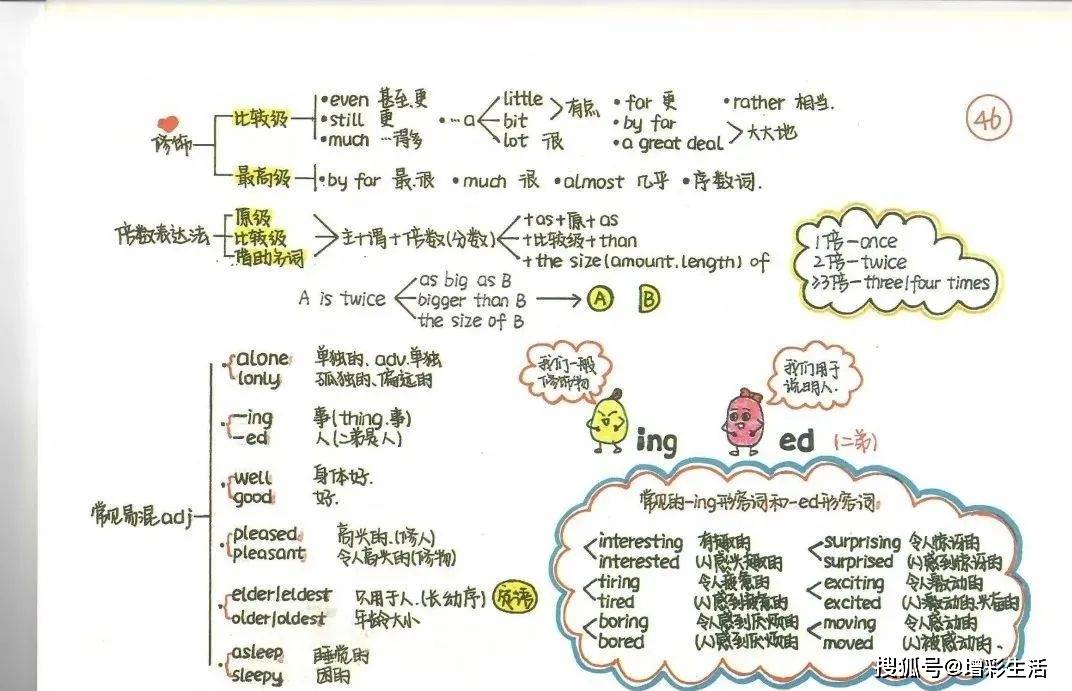 修饰
比较级
•even 甚至.更
•still 更
•much …得多
•…a
little
bit
有点
lot 很
•far 更
•by far
•a great deal
大大地
•rather 相当.
46
最高级
•by far 最.很 •much 很 •almost 几乎 •序数词.
倍数表达法
原级
比较级
借助名词
主+谓+倍数(分数)
+as+原+as
+比较级+than
+the size(amount.length) of
1倍-once
2倍-twice
≥3倍-three/four times
A is twice
as big as B
bigger than B
the size of B
A B
常见易混adj
alone 单独的、adv.单独
lonly 孤独的、偏远的
-ing 事(thing.事)
-ed 人(二弟是人)
well 身体好.
good 好.
pleased 高兴的.(修人)
pleasant 令人高兴的(修物)
elder/eldest 只用于人.(长幼序) 定语
older/oldest 年龄大小
asleep 睡觉的
sleepy 困的
我们一般
修饰物
ing
我们用于
说明人.
ed (二弟)
常见的-ing形容词和-ed形容词.
interesting 有趣的
interested (人)感兴趣的
tiring 令人疲惫的
tired (人)感到疲惫的
boring 令人感到厌烦的
bored (人)感到厌烦的
surprising 令人惊讶的
surprised (人)感到惊讶的
exciting 令人激动的
excited (人)激动的.兴奋的
moving 令人感动的
moved (人)被感动的.
搜狐号@增彩生活